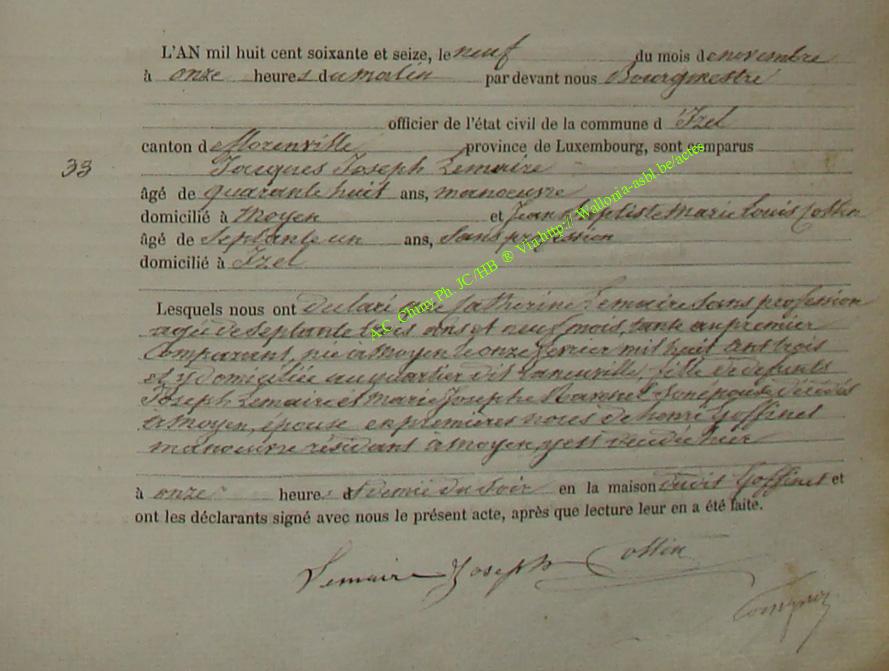 L'AN mil huit cent soixante et seize, le neuf du mois de novembre
à onze heures du matin par devant nous Bourgmestre
officier de l'état civil de la commune d Izel
canton de florenville province de Luxembourg, sont comparus
33 Jacques Joseph Lemaire
âgé de quarante huit ans, manoeuvre
domicilié à Moyen et Jean Baptiste Marie Louis Collin
âgé de Septante un ans, Sans profession
domicilié à Izel
Lesquels nous ont déclaré que Catherine Lemaire Sans profession
agée de Septante trois ans et neuf mois, tante au premier
Comparant, née à Moyen le onze fevrier mil huit cent trois
et y domiciliée au quartier dit laneuville, fille de defunts
Joseph Lemaire et Marie Josephe son épouse décédés
à Moyen, épouse en premières noces de henri Goffinet
manoeuvre résidant à Moyen, y est décédée hier
à onze heures et demie du Soir en la maison dudit Goffinet et
ont les déclarants signé avec nous le présent acte, après que lecture leur en a été faite.
Lemaire Joseph Collin
A.C. Chiny Ph. JC/HB ® Via http://Wallonia-asbl.be/actes